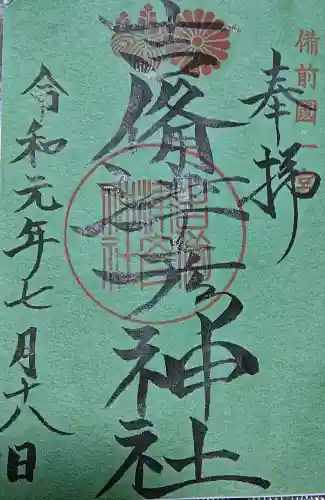 備前國一宮
奉拝
吉備津彦神社
令和元年七月十八日